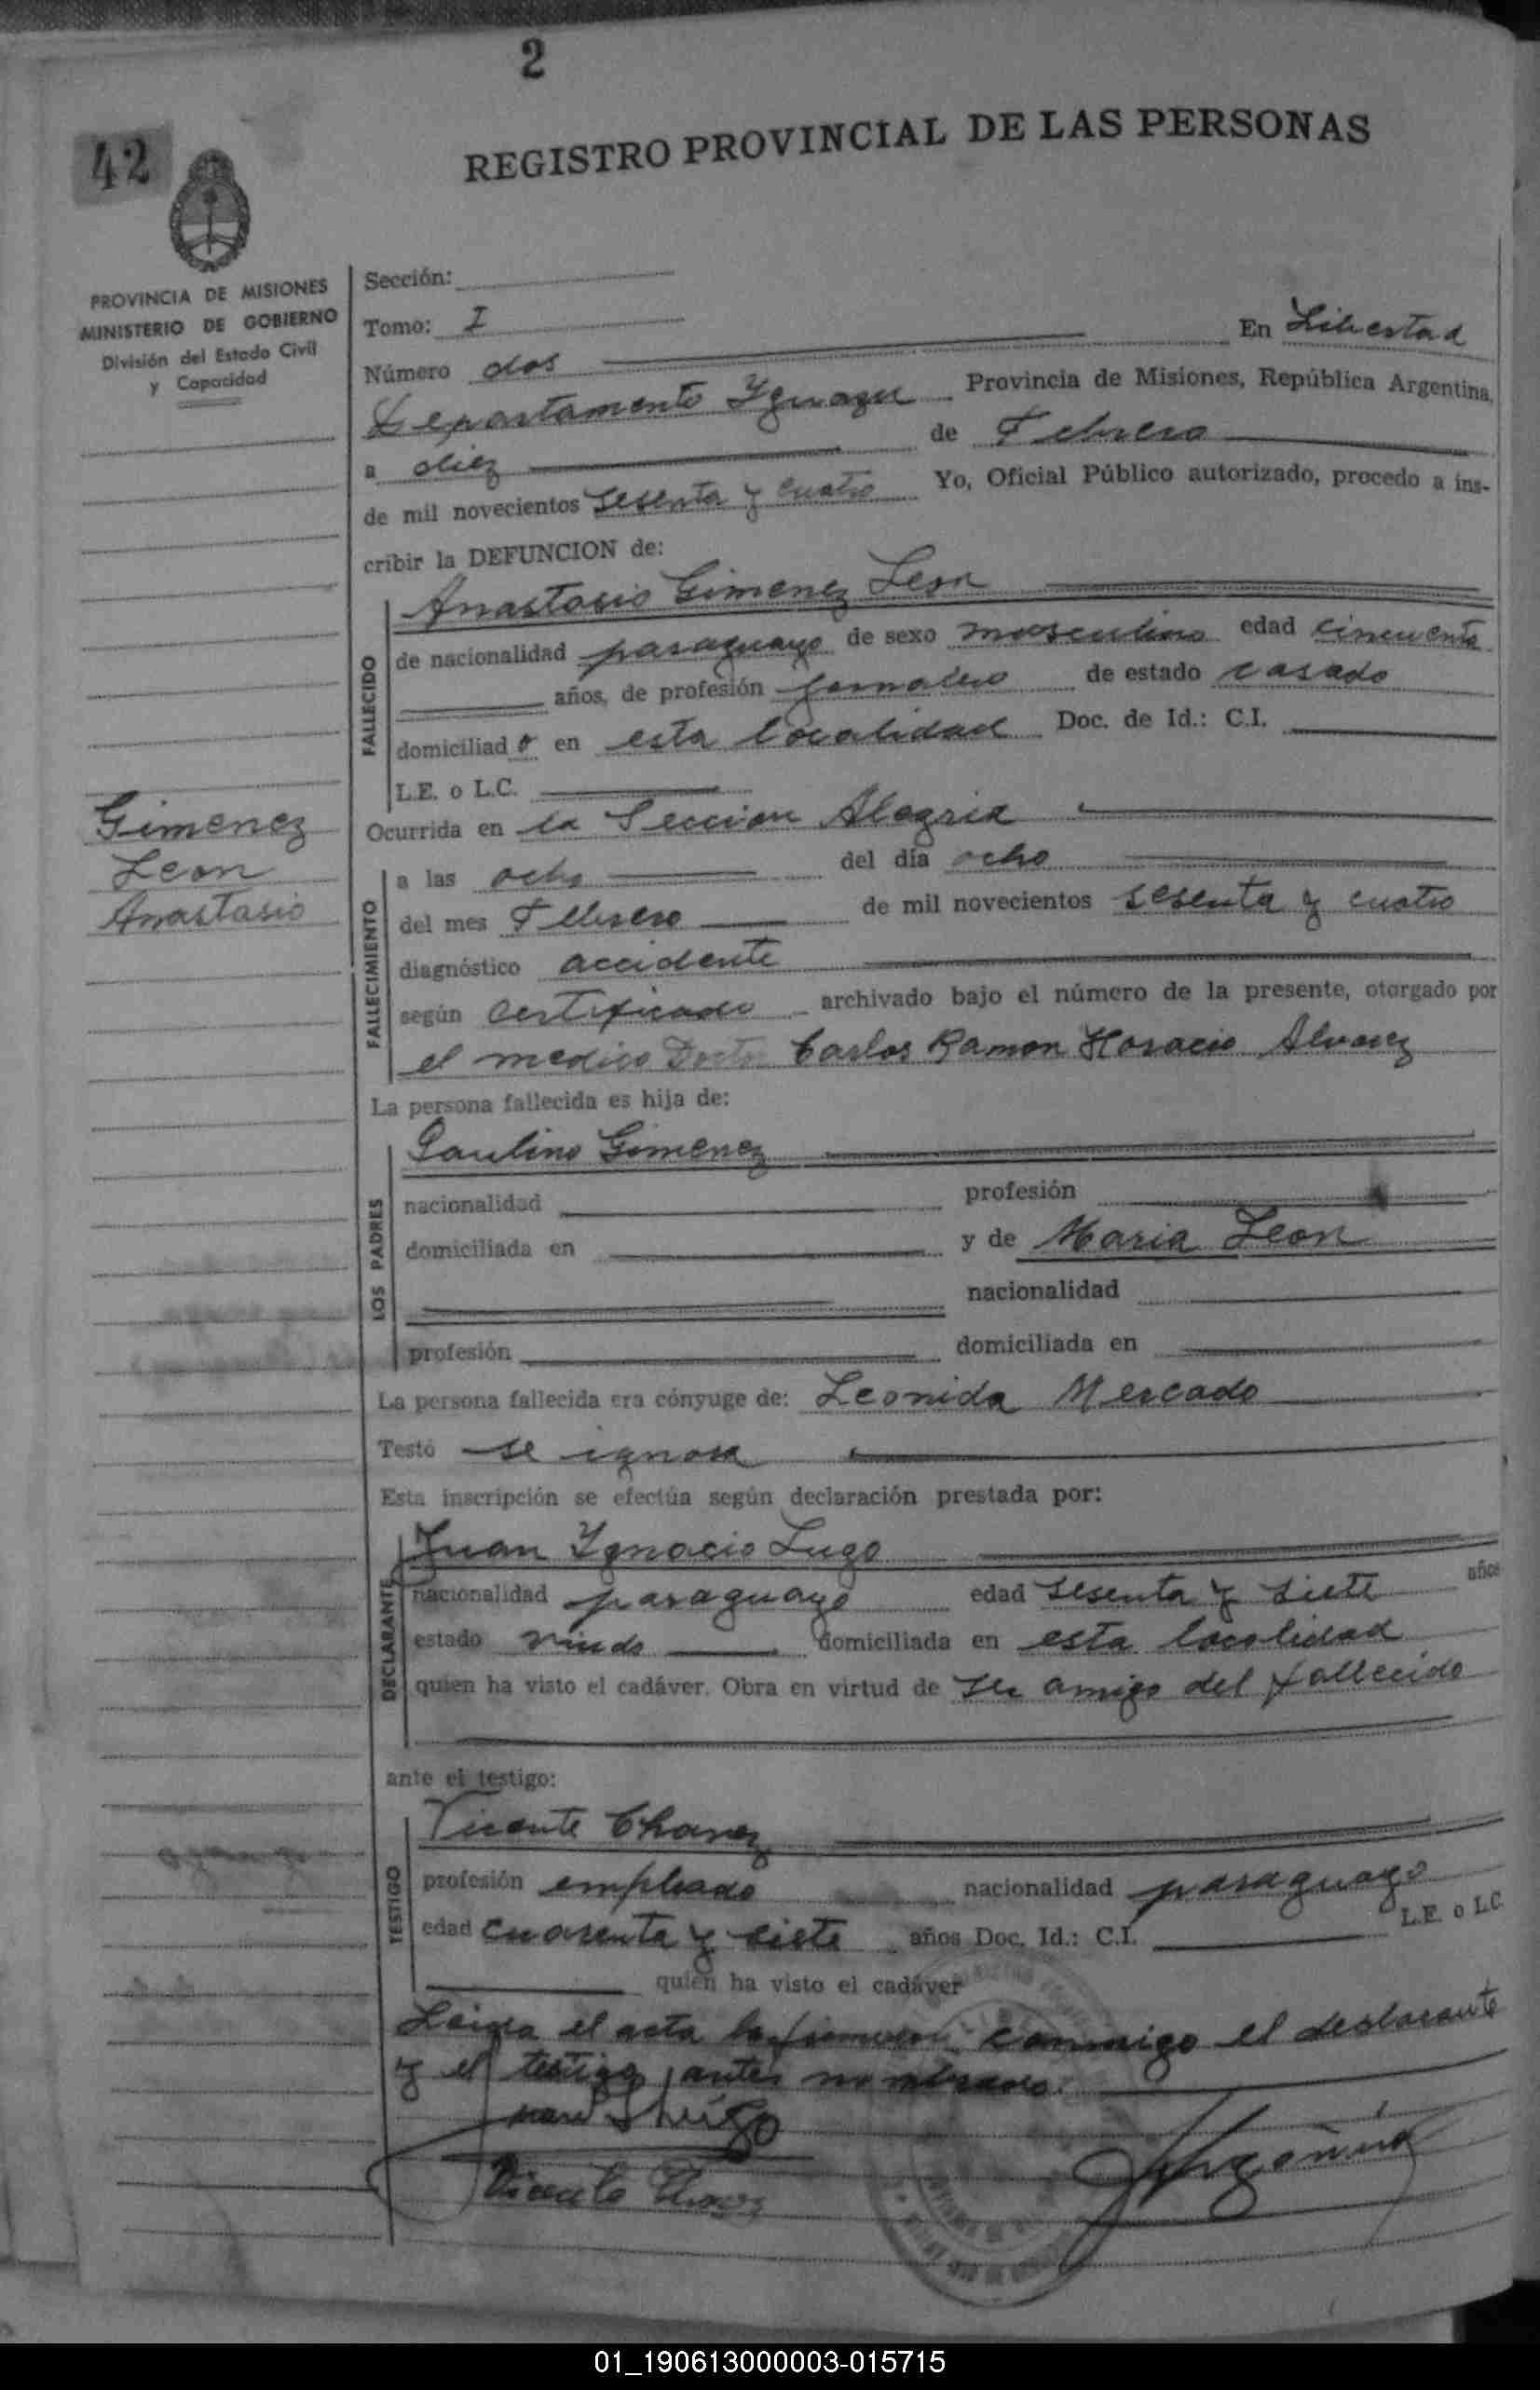 2
42
REGISTRO PROVINCIAL DE LAS PERSONAS
PROVINCIA DE MISIONES
MINISTERIO DE GOBIERNO
División del Estado Civil
y Capacidad
Gimenez
Leon
Anastasio
Sección:
Tomo: I
Número dos En Libertad
Departamento Yguazu Provincia de Misiones, República Argentina,
a diez de Febrero
de mil novecientos sesenta y cuatro Yo, Oficial Público autorizado, procedo a ins-
cribir la DEFUNCION de:
FALLECIDO
Anastasio Gimenez Leon
de nacionalidad paraguayo de sexo masculino edad cincuenta
años, de profesión jornalero de estado casado
domiciliado en esta localidad Doc. de Id.: C.I.
L.E. o L.C.
Ocurrida en la Seccion Alegria
FALLECIMIENTO
a las ocho del día ocho
del mes Febrero de mil novecientos sesenta y cuatro
diagnóstico accidente
según certificado archivado bajo el número de la presente, otorgado por
el medico Doctor Carlos Ramon Horacio Alvarez
La persona fallecida es hija de:
LOS PADRES
Paulino Gimenez
nacionalidad profesión
domiciliada en y de Maria Leon
nacionalidad
profesión domiciliada en
La persona fallecida era cónyuge de: Leonida Mercado
Testó se ignora
Esta inscripción se efectúa según declaración prestada por:
DECLARANTE
Juan Ygnacio Lugo
nacionalidad paraguayo edad sesenta y siete años
estado viudo domiciliada en esta localidad
quien ha visto el cadáver. Obra en virtud de ser amigo del fallecido
ante el testigo:
TESTIGO
Vicente Chavez
profesión empleado nacionalidad paraguayo
edad cuarenta y siete años Doc. Id.: C.I. L.E. o L.C.
quien ha visto el cadáver
Leida el acta la firmaron conmigo el declarante
y el testigo antes nombrados.
Juan Lugo
Vicente Chavez
01_190613000003-015715